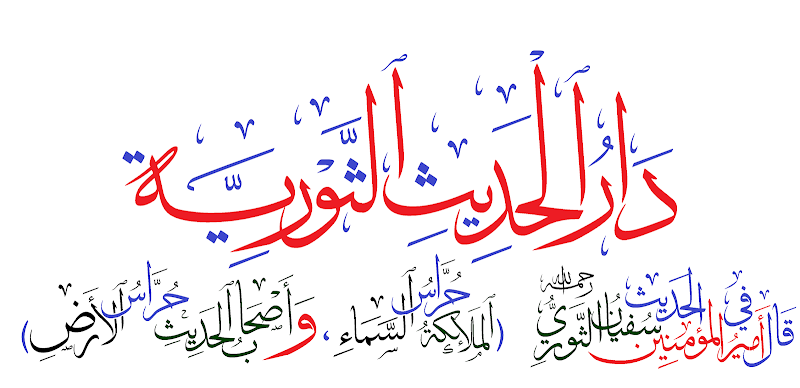 دَارُ الْحَدِيثِ الثَّوْرِيَّة
قَالَ أَمِيرُ المُؤْمِنِين في الحَدِيث سُفيَان الثَّوْرِيُّ رحمه الله ( المَلَائِكَةُ حُرَّاسُ السَّمَاءِ ، وَأَصْحَابُ الحَدِيث حُرَّاسُ الأَرْضِ )